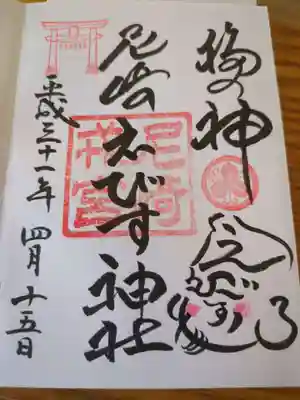 福の神
尼崎えびす神社
尼崎
戎宮
平成三十一年 四月 十五日